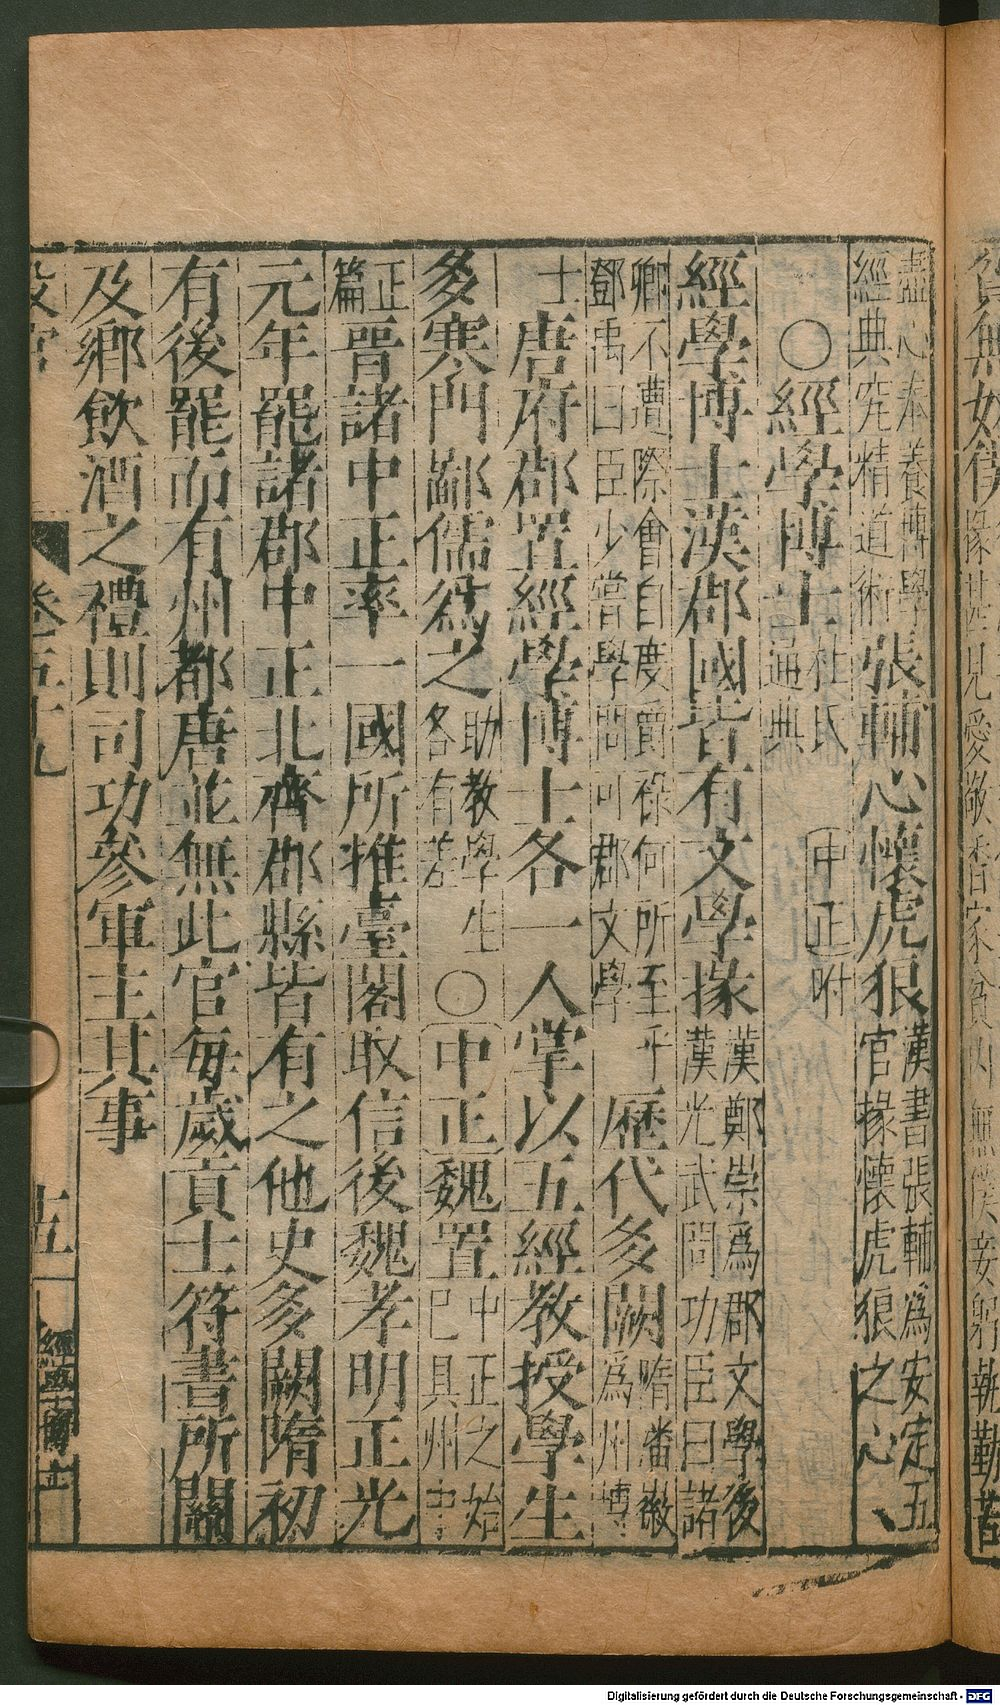 盡心奉養博學
經典究精道術張輔心懷虎狼漢書張輔爲安定五
官掾懷虎狼之心
○經學博士杜氏通典 中正附
經學博士漢郡國皆有文學掾漢鄭崇爲郡文學後
漢光武問功臣曰諸
卿不遭際會自度爵祿何所至乎
鄧禹曰臣少嘗學問可郡文學 歷代多闕隋潘徽
爲州博
士 唐府郡置經學博士各一人掌以五經教授學生
多寒門鄙儒爲之助教學生
各有差 ○中正魏置中正之始
已具州中
正
篇 晉諸中正率一國所推臺閣取信後魏孝明正光
元年罷諸郡中正北齊郡縣皆有之他史多闕隋初
有後罷而有州都唐並無此官每歲貢士符書所關
及鄉飲酒之禮則司功參軍主其事
卷五十九 十五 經學博士
無 掾 見愛敬 家 無 妾躬執勤苦
Digitalisierung gefördert durch die Deutsche Forschungsgemeinschaft - DFG